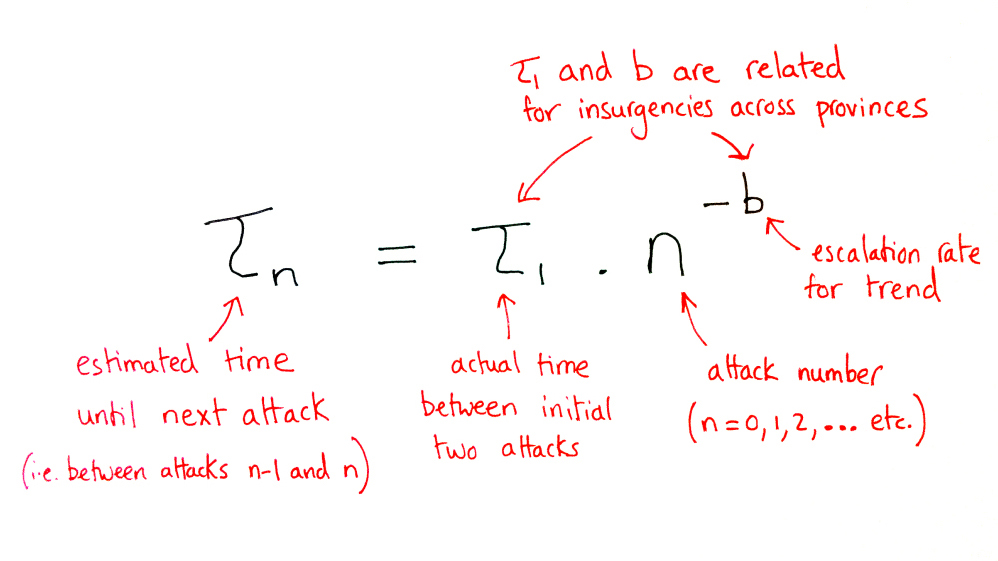 τ₁ and b are related
for insurgencies across provinces
τₙ = τ₁ . n⁻ᵇ
escalation rate
for trend
estimated time
until next attack
(i.e. between attacks n-1 and n)
actual time
between initial
two attacks
attack number
(n=0,1,2,... etc.)